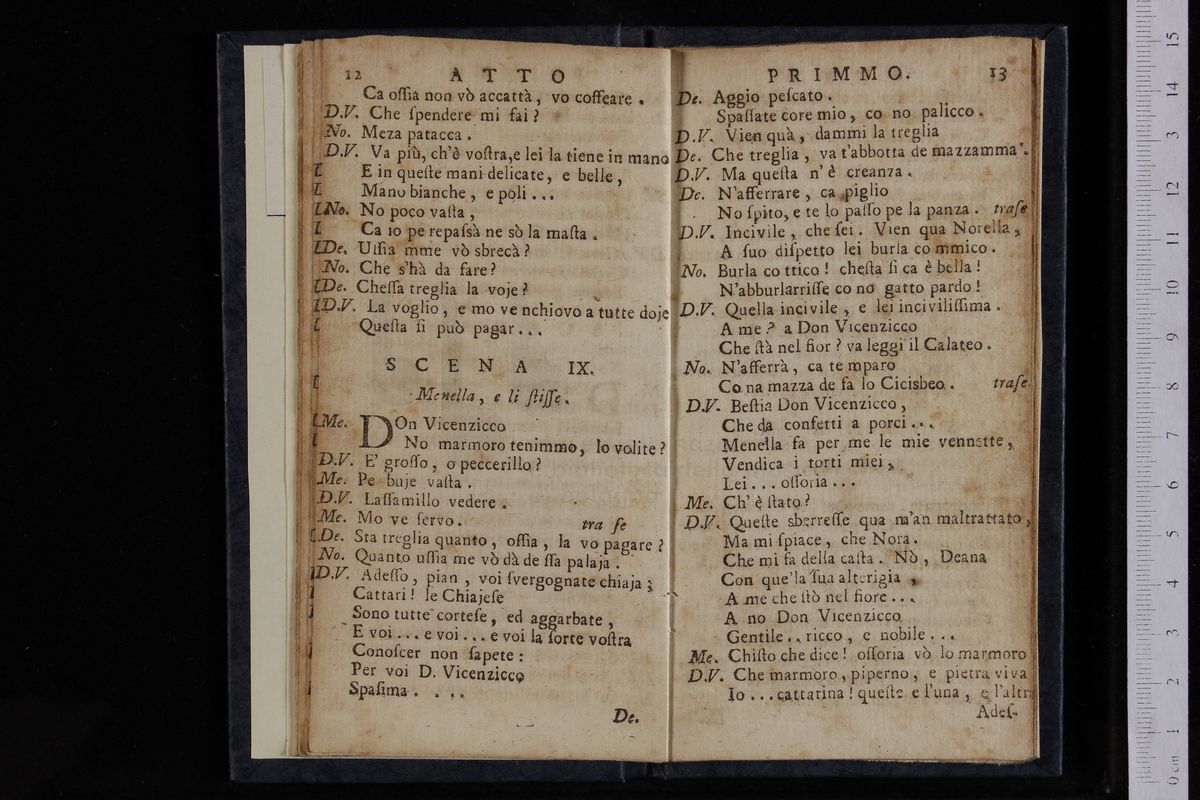 12 ATTO
Ca oſſia non vò accattà, vo coffeare.
D.V. Che ſpendere mi fai?
No. Meza patacca.
D.V. Va più, ch'è voſtra, e lei la tiene in mano
E in queſte mani delicate, e belle,
Mano bianche, e poli...
No. No poco vaſta,
Ca io pe repaſsà ne sò la maſta.
De. Uſſia mme vò sbrecà?
No. Che s'hà da fare?
De. Cheſſa treglia la voje?
D.V. La voglio, e mo ve nchiovo a tutte doje
Queſta ſi può pagar...
SCENA IX.
Menella, e li ſtiſſe.
Me. DOn Vicenzicco
No marmoro tenimmo, lo volite?
D.V. E' groſſo, o peccerillo?
Me. Pe buje vaſta.
D.V. Laſſamillo vedere.
Me. Mo ve ſervo. tra ſe
De. Sta treglia quanto, oſſia, la vo pagare?
No. Quanto uſſia me vò dà de ſſa palaja.
D.V. Adeſſo, pian, voi ſvergognate chiaja;
Cattari! le Chiajeſe
Sono tutte corteſe, ed aggarbate,
E voi... e voi... e voi la ſorte voſtra
Conoſcer non ſapete:
Per voi D. Vicenzicco
Spaſima....
De.
PRIMMO. 13
De. Aggio peſcato.
Spaſſate core mio, co no palicco.
D.V. Vien quà, dammi la treglia
De. Che treglia, va t'abbotta de mazzamma.
D.V. Ma queſta n'è creanza.
De. N'afferrare, ca piglio
No ſpito, e te lo paſſo pe la panza. traſe
D.V. Incivile, che ſei. Vien qua Norella,
A ſuo diſpetto lei burla co mmico.
No. Burla co ttico! cheſta ſi ca è bella!
N'abburlarriſſe co no gatto pardo!
D.V. Quella incivile, e lei inciviliſſima.
A me? a Don Vicenzicco
Che ſtà nel fior? va leggi il Calateo.
No. N'afferrà, ca te mparo
Co na mazza de fa lo Cicisbeo. traſe.
D.V. Beſtia Don Vicenzicco,
Che da confetti a porci...
Menella fa per me le mie vennette,
Vendica i torti miei,
Lei... oſſoria...
Me. Ch' è ſtato?
D.V. Queſte sberreſſe qua m'an maltrattato,
Ma mi ſpiace, che Nora.
Che mi fa della caſta. Nò, Deana
Con que'la ſua alterigia,
A me che ſtò nel fiore...
A no Don Vicenzicco
Gentile.. ricco, e nobile...
Me. Chiſto che dice! oſſoria vò lo marmoro
D.V. Che marmoro, piperno, e pietra viva
Io... cattarina! queſte e l'una, e l'altra
Adeſ-
0 cm 1 2 3 4 5 6 7 8 9 10 11 12 13 14 15